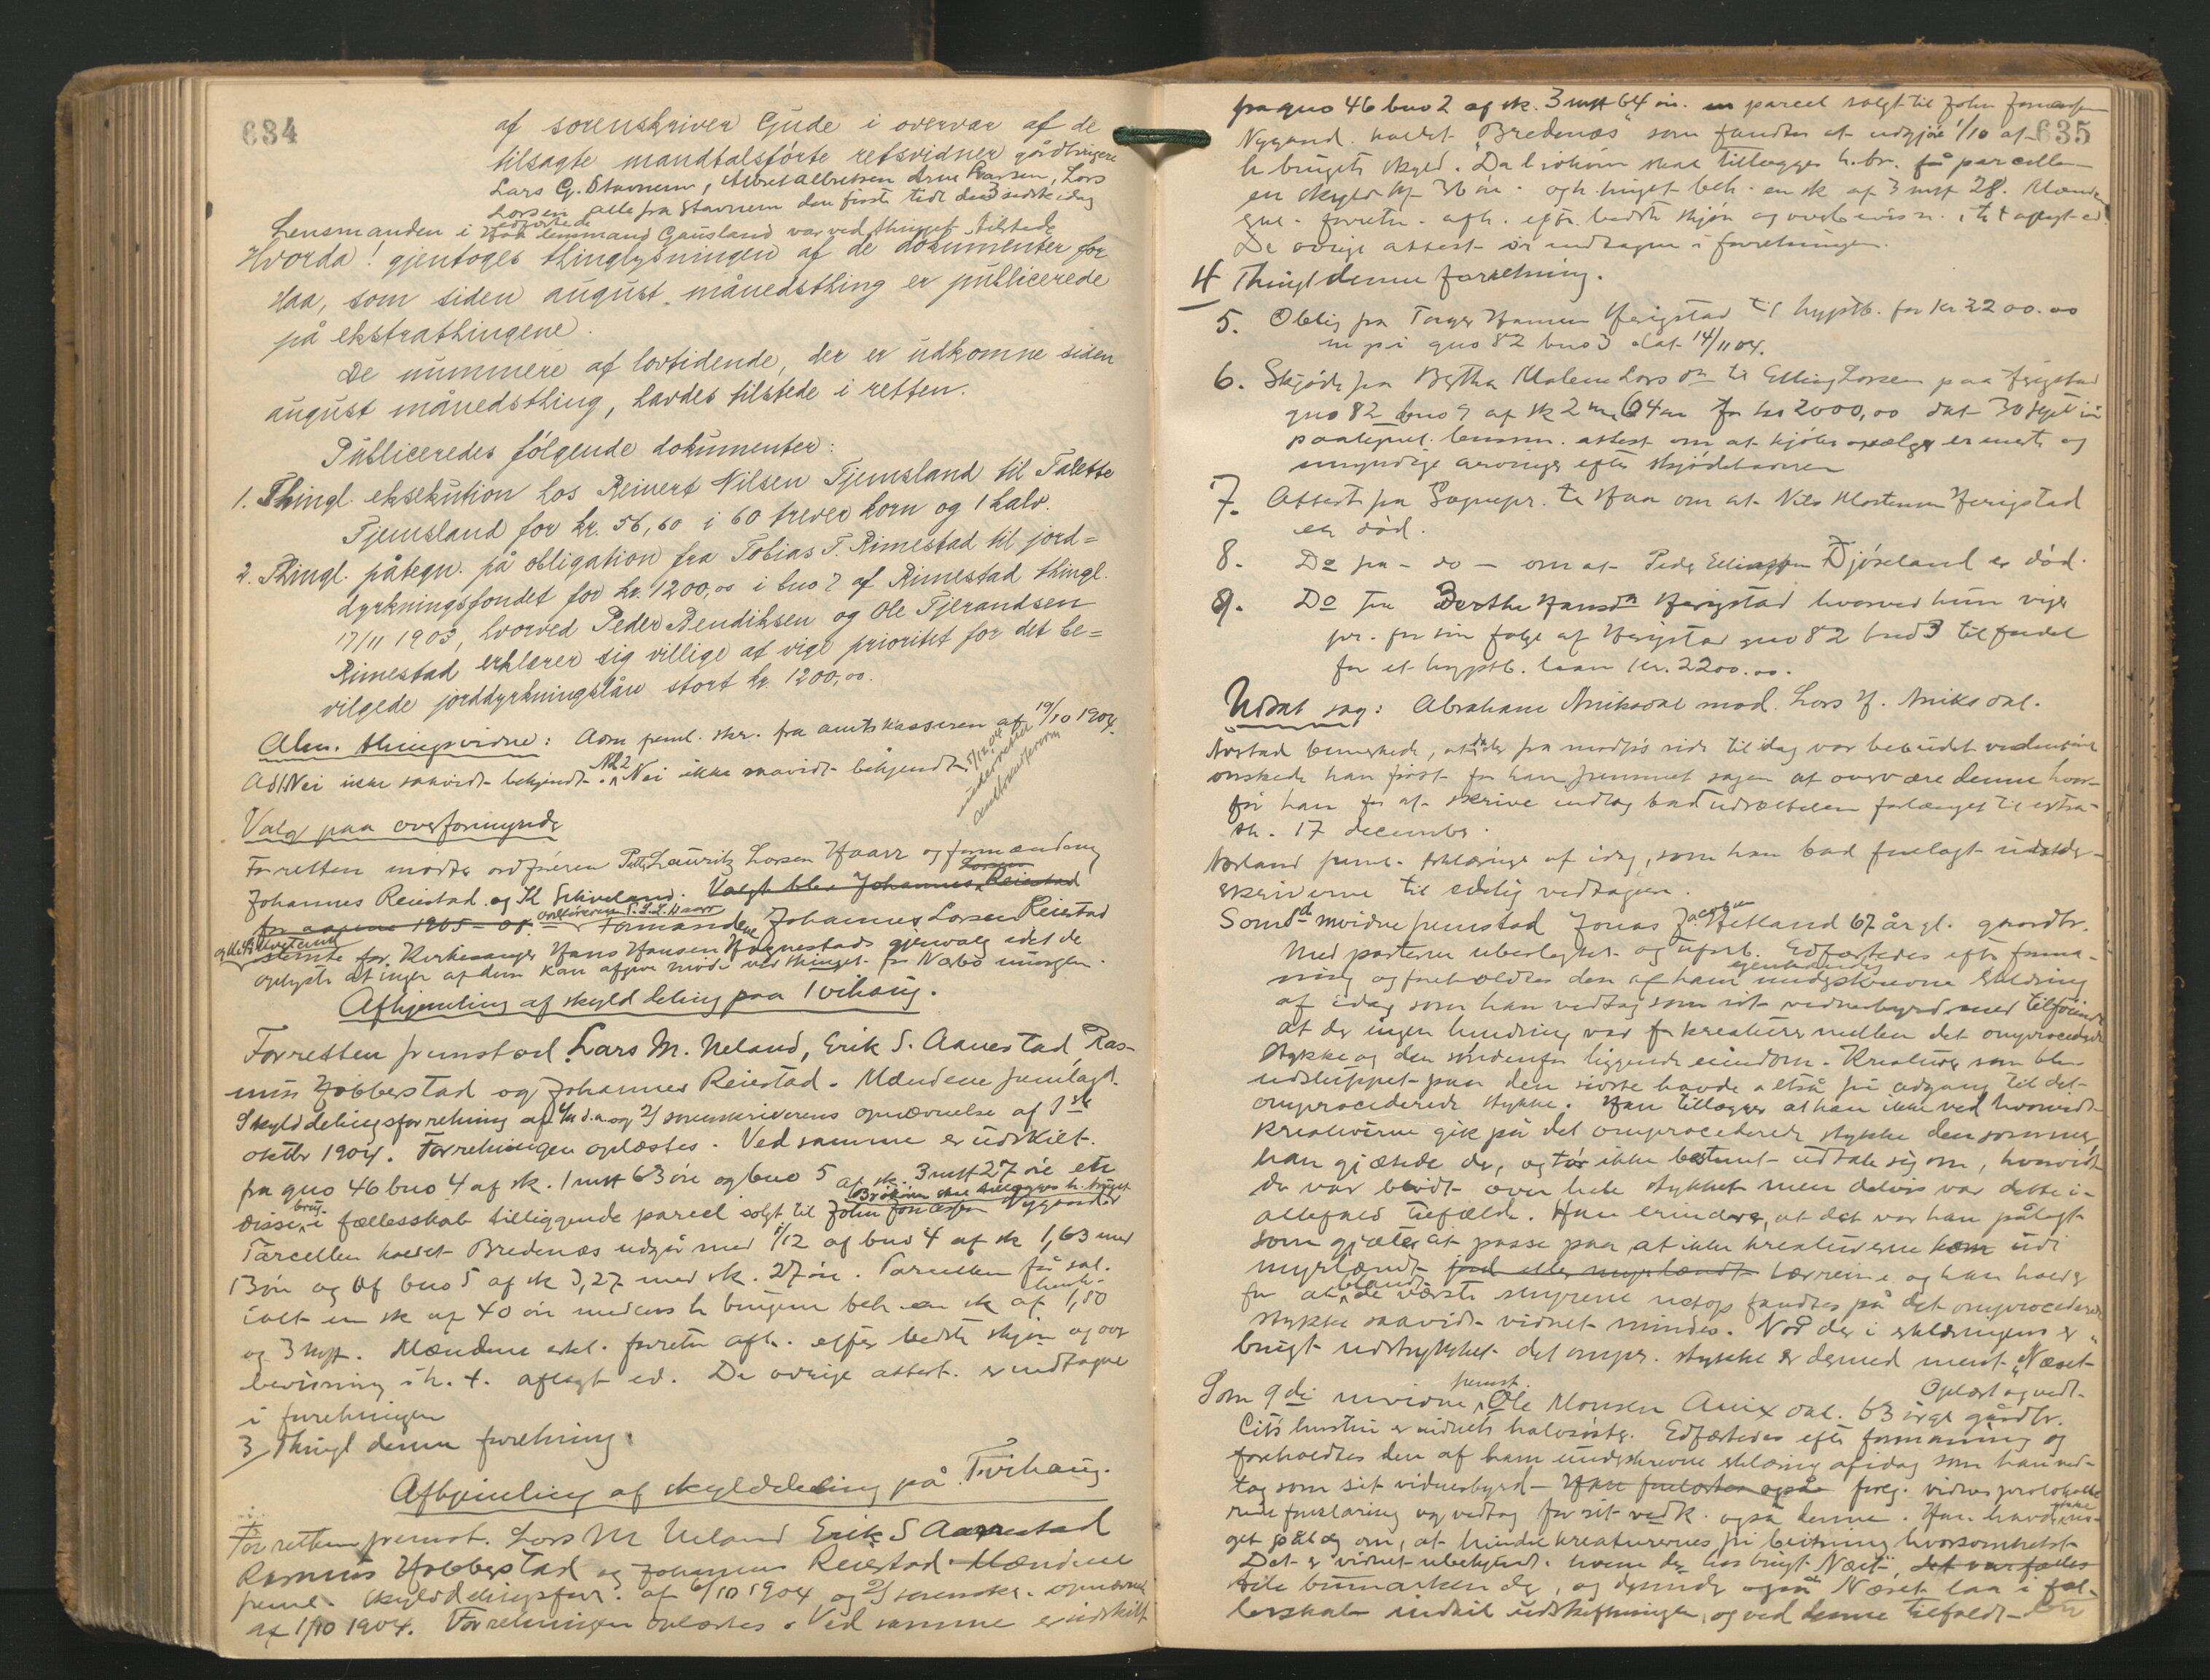 634
af sorenskriver Gude i overvær af de
tilsagte mandtalsførte retsvidner gårdbrugere
Lars G. Stavnem, Albret Albretsen Arne Larsen, Lars
Larsen alle fra Stavnem den første tidl. de 3 sidste idag
edfæstede
Lensmanden i Haa lensmand Gausland var ved thinget tilstede
Hvorda! gjentoges thinglysningen af de dokumenter for
Haa, som siden august månedsthing er publicerede
på ekstrathingene.
De nummere af lovtidende, der er udkomne siden
august månedsthing, havdes tilstede i retten.
Publiceredes følgende dokumenter:
1. Thingl. eksekution hos Reinert Nilsen Tjemsland til Talette
Tjemsland for kr. 56,60 i 60 trever korn og 1 kalv.
2. Thingl. påtegn. på obligation fra Tobias T. Rimestad til jord=
dyrkningsfondet for kr. 1200,00 i bno 7 af Rimestad thingl.
17/11 1903, hvorved Peder Bendiksen og Ole Tjerandsen
Rimestad erklærer sig villige at vige prioritet for det be=
vilgede jorddyrkningslån stort kr. 1200,00.
Alm. thingsvidne: Adm freml. skr. fra amtskasseren af 19/10 1904.
Ad 1 Nei ikke saavidt bekjendt. Ad 2 Nei ikke saavidt bekjendt.
5/12 04
underrettet
amtskassereren
Valg paa overformynder
For retten mødte ordføreren Peter Lauritz Larsen Haarr og formændene
Johannes Reiestad og K Skiveland. Valgt blev Johannes Larsen Reiestad
for aarene 1905-08. ordføreren P. L. L. Haarr Formændene Johannes Larsen Reiestad
stemte for Kirkesanger Hans Hansen Haugnestads gjenvalg idet de
oplyste at ingen af dem kan afgive møde ved thinget for Nærbø imorgen.
Afhjemling af skylddeling paa Tvihaug.
For retten fremstod Lars M. Ueland, Erik S. Aanestad Ras-
mus Hobberstad og Johannes Reiestad. Mændene fremlagde
Skylddelingsforretning af d. a. og 2) sorenskriverens opnævnelse af 1ste
oktbr 1904. Forretningen oplæstes. Ved samme er udskilt
fra gno 46 bno 4 af sk. 1 mrk 63 øre og bno 5 af sk. 3 mrk 27 øre en
disse brug i fællesskab tilliggende parcel solgt til John Jonassen Nygaard
Brøkøren skal tillægges h. bruget
Parcellen kaldet Bredenæs udgjør med 1/12 af bno 4 af sk 1,63 med
13 øre og af bno 5 af sk 3,27 med sk. 27 øre. Parcellen får sål.
ialt en sk af 40 øre medens h. brugene beh. en sk af 1,50
og 3 mrk. Mændene erkl. forretn afh. efter bedste skjøn og over
bevisning i h. t. aflagt ed. De øvrige attest. er indtagne
i forretningen
3 Thingl denne forretning.
Afhjemling af skylddeling på Tvihaug.
For retten fremst. Lars M Ueland Erik S Aanestad
Rasmus Hobberstad og Johannes Reiestad. Mændene
freml. skylddelingsforr. af 6/10 1904 og 2) sorenskr. opnævnelse
af 1/10 1904. Forretningen oplæstes. Ved samme er udskilt
635
fra gno 46 bno 2 af sk. 3 mrk 64 øre. en parcel solgt til John Jonassen
Nygaard kaldet "Bredenæs" som fandtes at udgjøre 1/10 af
h. brugets skyld. Da brøkøren skal tillægges h. br. får parcellen
en skyld af 36 øre og h. bruget beh. en sk af 3 mrk 28. Mændene
erkl. forretn. afh. efter bedste skjøn og overbevisn. i h t aflagt ed
De øvrige attest er indtagne i forretningen.
4 Thingl denne forretning.
5. Oblig fra Torger Hansen Herigstad til hypotb. for kr 2200.00
m p i gno 82 bno 3 dat 14/11 04.
6. Skjøde fra Bertha Malene Larsdtr til Elling Larsen paa Herigstad
gno 82 bno 9 af sk 2 mrk 64 øre for kr 2000,00 dat 30 sept iår
paategnet lensm. attest om at kjøber og sælger er eneste og
umyndige arvinger efter skjødehaveren
7. Attest fra Sognepr. til Haa om at Nils Mortensen Herigstad
er død.
8. Do fra - do - om at Peder Ellingsen Djøseland er død.
9. Do fra Berthe Hansdtr Herigstad hvorved hun viger
pr. for sin følge af Herigstad gno 82 bno 3 til fordel
for et hypotb. laan kr. 2200.00.
Udsat sag: Abraham Aniksdal mod Lars H. Aniksdal.
Nærland bemerkede, at der fra modp's side til idag var bebudet vidneførsel
ønskede han først før han fremmet sagen at overvære denne hvor-
for han for at skrive indlæg bad udsættelsen forlænget til extra-
th. 17 december.
Nærland freml. erklæringer af idag, som han bad forelagt underskriverne
skriverne til edelig vedtagelse.
Som 8de vidne fremstod Jonas Jacobsen Hetland 67 år gl. gaardbr.
Med parterne ubeslægtet og ubesv. Edfæstedes efter forma-
ning og foreholdtes den af ham egenhændig underskrevne erklæring
af idag som han vedtog som sit vidnesbyrd med tilføiende
at der ingen hindring var for kreaturer mellem det omprocederede
stykke og den søndenfor liggende eiendom. Kreaturer som blev
udsluppet paa den sidste havde altså fri adgang til det
omprocederede stykke. Han tillægger at han ikke ved hvorvidt
kreaturerne gik på det omprocederede stykke den sommer
han gjætede der, og tør ikke bestemt udtale sig om, hvorvidt
der var beidt over hele stykket men delvis var dette i
allefald tilfælde. Han erindrer, at det var han pålagt
som gjæter at passe paa at ikke kreaturerne kom udi
myrlændt jord eller myrlændt terræng og han holder
for at blandt de værste myrene netop fandtes på det omprocederede
stykke saavidt vidnet mindes. Naar der i erklæringen er
brugt udtrykket det ompr. stykke er dermed ment "Næset"
Oplæst og vedt.
Som 9de vidne fremst. Ole Monsen Aniksdal. 63 år gl gårdbr.
Cits hustru er vidnets halvsøster. Edfæstedes efter formaning og
foreholdtes den af ham underskrevne erklæring af idag som han ved-
tog som sit vidnesbyrd — Han forelæstes også foreg. vidnes protokolle-
rede forklaring og vedtog for sit vedk. også denne. Han havde ikke no-
get pålæg om, at hindre kreaturernes fri beitning hvorsomhelst
Det er vidnet ubekjendt hvem der har brugt Næset, det var fælles
Hele bumarken der, og derunder også Næset laa i fæl-
lesskab indtil udskiftningen, og ved denne tilfaldt